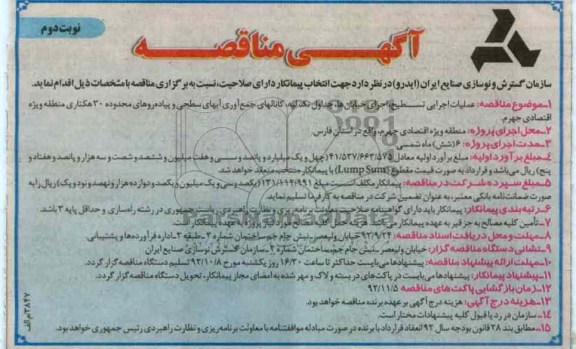 نوبت دوم
آگهـی مناقصـه
سازمان گسترش و نوسازی صنایع ایران (ایدرو) در نظر دارد جهت انتخاب پیمانکار دارای صلاحیت، نسبت به برگزاری مناقصه با مشخصات ذیل اقدام نماید.
۱-موضوع مناقصه: عملیات اجرایی تسطیح، اجرای خیابان ها، جداول تک لبه، کانالهای جمع آوری آبهای سطحی و پیاده روهای محدوده ۳۰ هکتاری منطقه ویژه
اقتصادی جهرم.
۲-محل اجرای پروژه: منطقه ویژه اقتصادی جهرم، واقع در استان فارس.
۳-مدت اجرای پروژه: ۶ (شش) ماه شمسی
۴-مبلغ برآورد اولیه: مبلغ برآورد اولیه معادل ۴۱/۵۳۷/۶۶۳/۵۷۵ (چهل و یک میلیارد و پانصد و سی و هفت میلیون و ششصد و شصت و سه هزار و پانصد و هفتاد و
پنج) ریال می‌باشد و قرارداد به صورت قیمت مقطوع (Lump Sum) با پیمانکار منتخب منعقد خواهد شد.
۵-مبلغ سپرده شرکت در مناقصه: پیمانکار مکلف است مبلغ ۱۳۱/۶۱۲/۹۹۱ (یکصد و سی و یک میلیون و یکصد و دوازده هزار و نهصد و نود و یک) ریال را به
صورت ضمانت نامه بانکی معتبر، به عنوان تضمین شرکت در مناقصه به کارفرما تسلیم نماید.
۶-رتبه بندی پیمانکار: پیمانکار باید دارای گواهینامه معاونت برنامه ریزی و نظارت راهبردی ریاست جمهوری در رشته راه سازی و حداقل پایه ۳ باشد.
۷-تأمین کلیه مصالح به جز قیر به عهده پیمانکار
۸-مهلت و محل دریافت اسناد مناقصه: ۹۲/۹/۲۴ خیابان ولیعصر نبش جام جم ساختمان شماره ۲- طبقه ۲- اداره قراردادها و پشتیبانی.
۹-نشانی دستگاه مناقصه گزار: خیابان ولیعصر نبش جام جم ساختمان شماره ۲ سازمان گسترش و نوسازی صنایع ایران
۱۰-مهلت ارائه پیشنهاد مناقصه: پیشنهادها می بایست حداکثر تا ساعت ۱۶/۳۰ روز یکشنبه مورخ ۹۲/۱۰/۸ تسلیم دستگاه مناقصه گزار گردد.
۱۱-پیشنهاد پیمانکار: پیشنهادها می بایست در پاکت های در بسته و لاک و مهر شده به امضای مجاز پیمانکار، تحویل دستگاه مناقصه گزار گردد.
۱۲-زمان بازگشایی پاکت های مناقصه ۹۲/۱۱/۵
۱۳-هزینه درج آگهی: هزینه درج آگهی بر عهده برنده مناقصه خواهد بود.
۱۴-سازمان در رد یا قبول کلیه پیشنهادات مختار است.
۱۵-مطابق بند ۲۸ قانون بودجه سال ۹۲ انعقاد قرارداد با برنده در صورت مبادله موافقتنامه با معاونت برنامه ریزی و نظارت راهبردی رئیس جمهوری خواهد بود.
۳۸۴۷/م الف